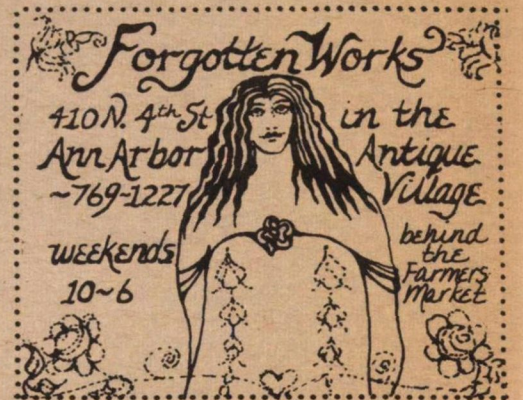 Forgotten Works
410 N. 4th St
Ann Arbor
~769-1227
weekends
10~6
in the
Antique
Village
behind
the
Farmers
Market